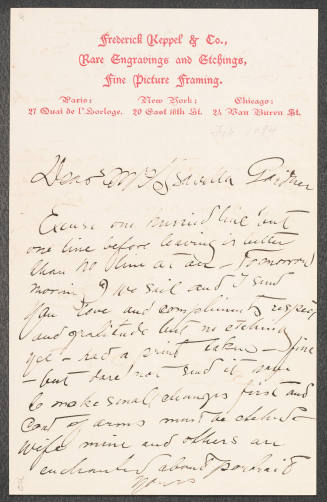 Frederick Keppel & Co.,
Rare Engravings and Etchings,
Fine Picture Framing.
Paris: New York: Chicago:
27 Quai de l'Horloge. 20 East 16th St. 24 Van Buren St.
1894
Dear Mrs Isabella Gardner
Excuse one hurried line but
one line before leaving is better
than no line at all – Tomorrow
morning we sail and I send
you Love and compliments respect
and gratitude but no etching
yet – had a print taken – fine
– but dare not send it have
to make small changes first and
Coat of arms must be etched –
wife mine and others are
enchanted about portrait
Yours